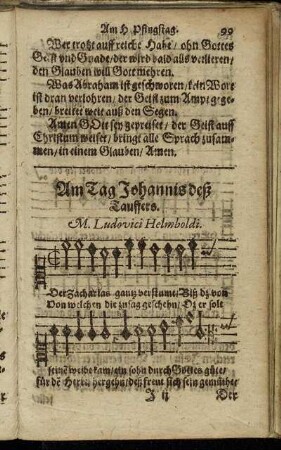 Am H Pfingstag. 99
Wer trotzt auff reiche Habe / ohn Gottes
Geist vnd Gnade / der wird bald alls verlieren /
den Glauben will Gott mehren.
Was Abraham ist geschworen / kein Wort
ist dran verlohren / der Geist zum Ampt gege-
ben / breitet weit auß den Segen.
Amen GOtt sey gepreiset / der Geist auff
Christum weiset / bringt alle Sprach zusam-
men / in einem Glauben / Amen.
Am Tag Johannis deß
Tauffers.
M. Ludovici Helmboldi.
Der Zacharias gantz verstumt / Biß dz von
Von welchen die zusag geschehn / Dz er solt
seinē weibe kam / ein sohn durch Gottes güte /
für dē Herrn hergehn / deß frewt sich sein gemühte
J ij Der